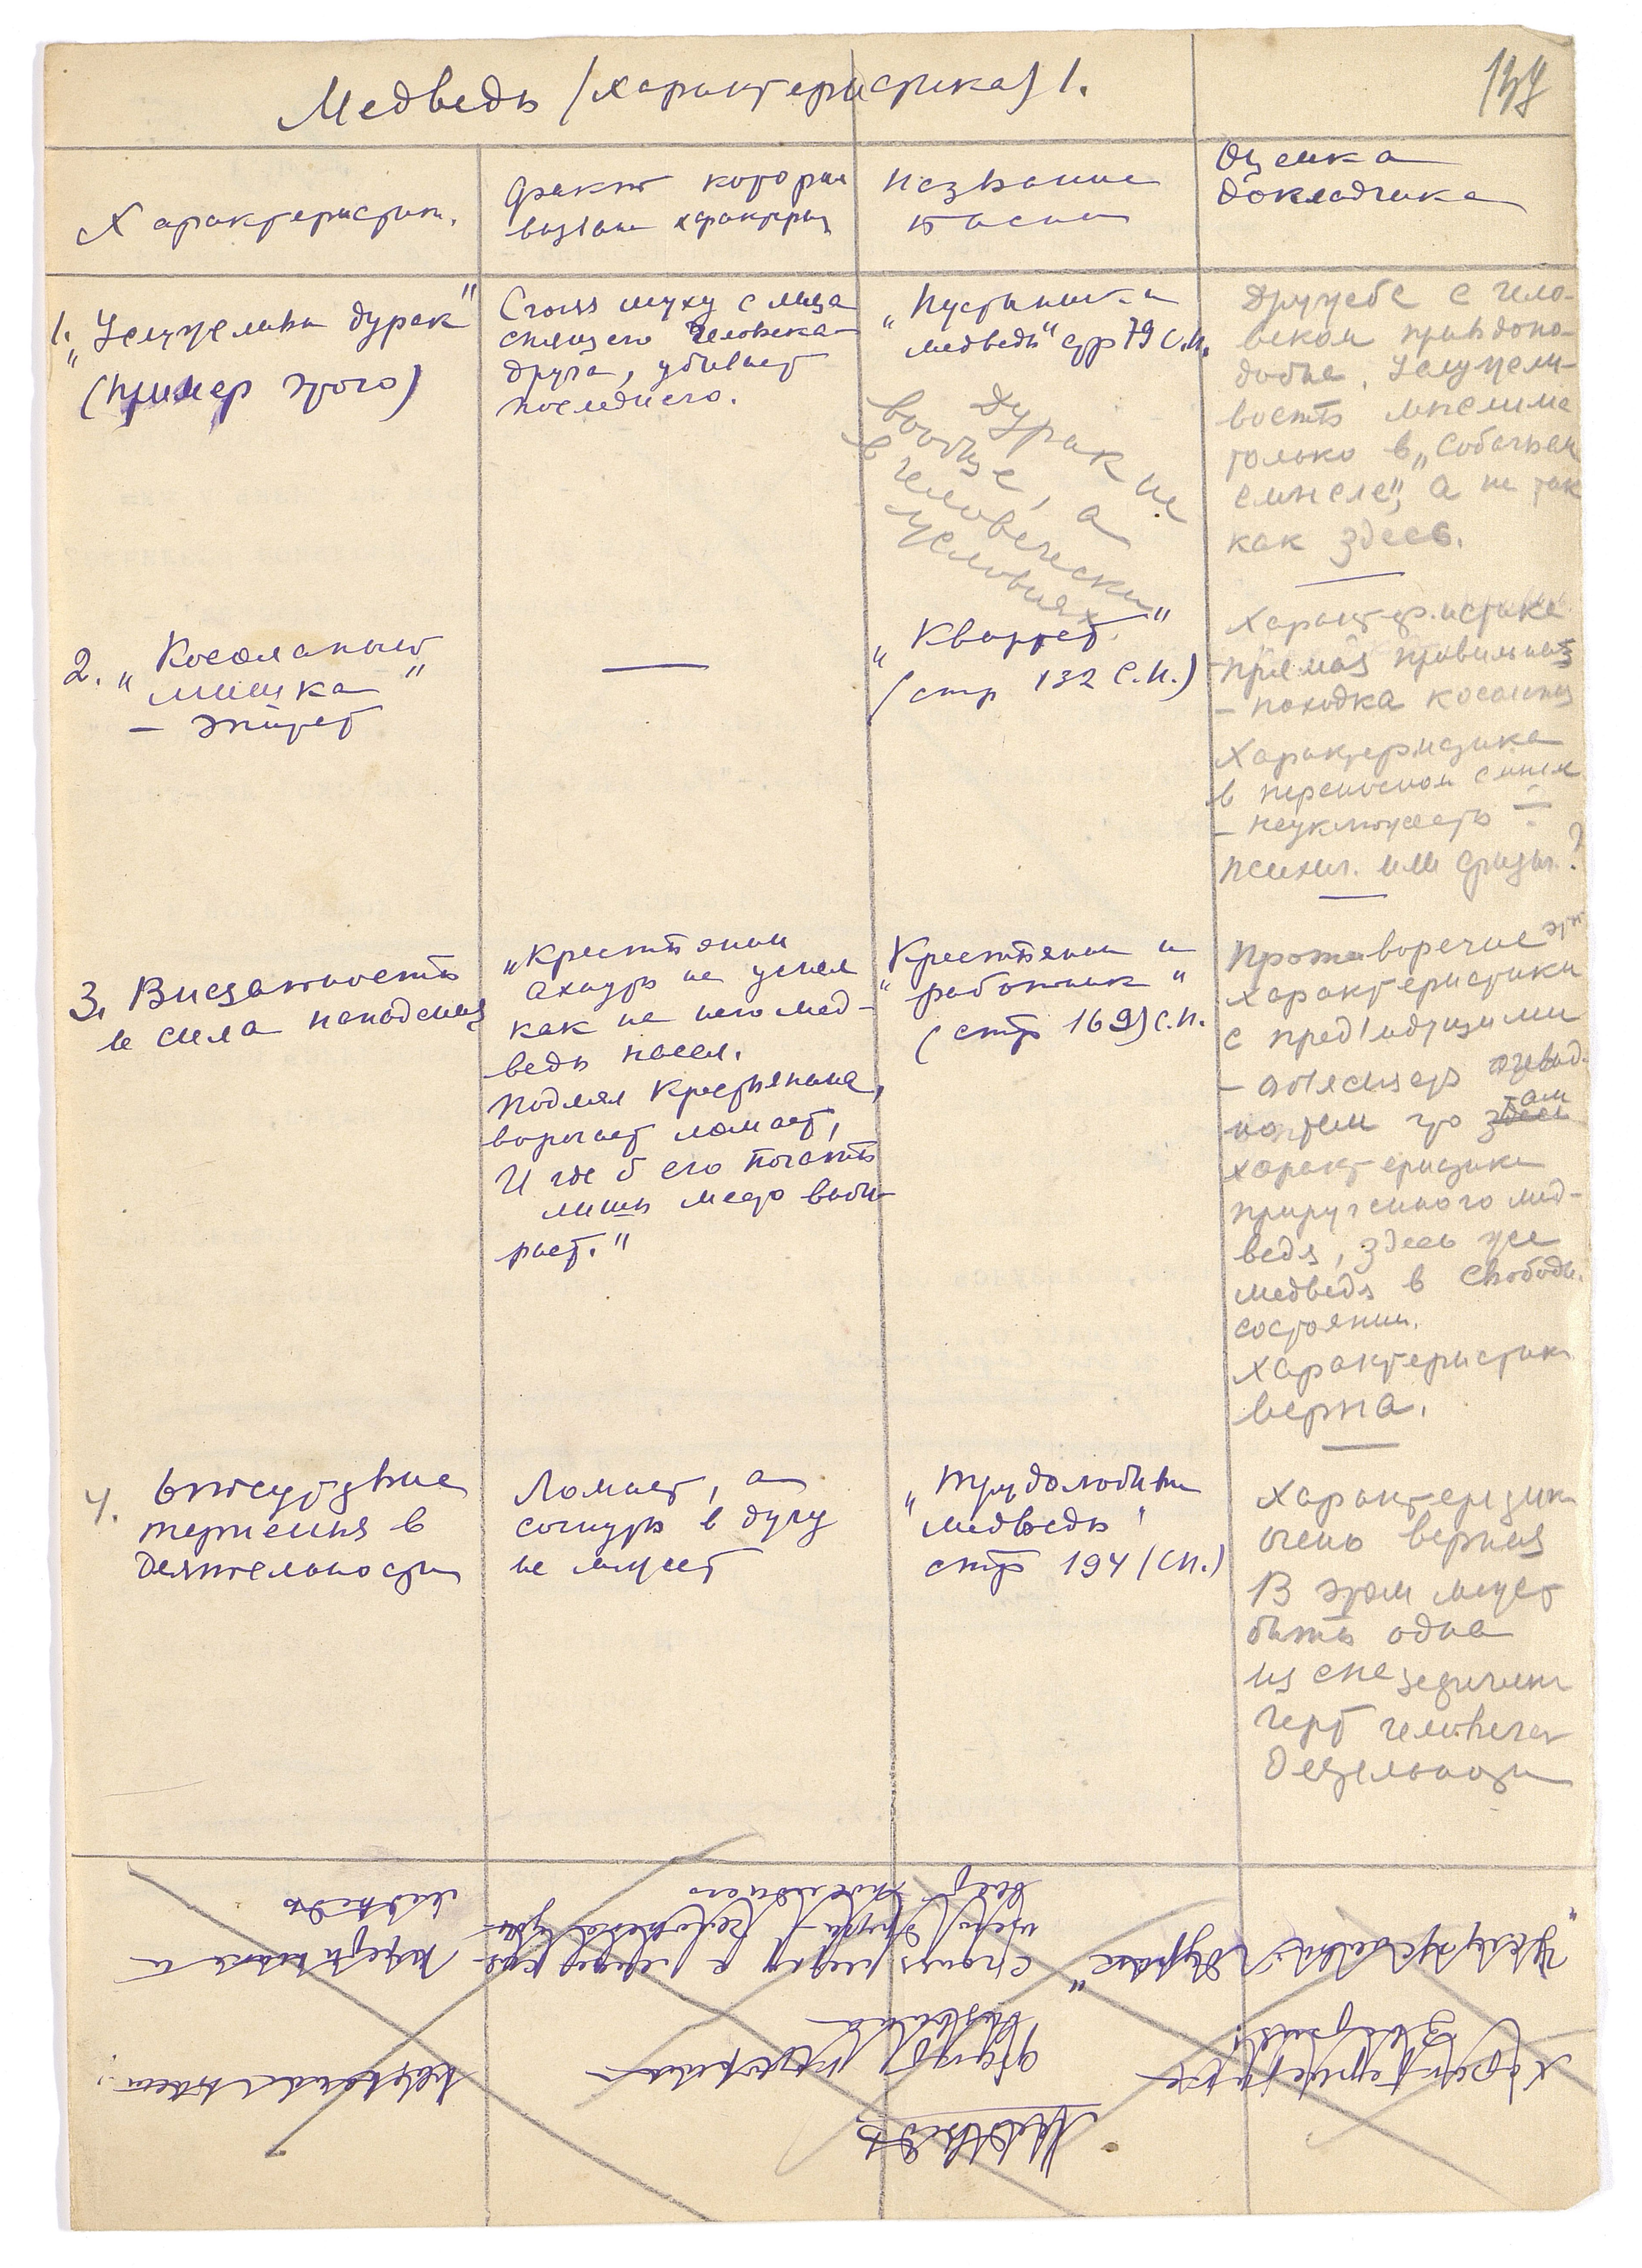 Медведь (характеристика) 1.
137
Характеристик.
Факт который
вызвал характериз
Название
басни
Оценка
докладчика
1. „Услужливый дурак"
(пример этого)
Сгоняя муху с лица
спящего человека
друга, убивает
последнего.
„Пустынник и
медведь" стр 79 С.И.
Дурак не
вообще, а
в человечески
условиях.
Дружба с чело-
веком правдопо-
добна. Услужли-
вость мыслима
только в „собачьем
смысле", а не так
как здесь.
2. „Косолапый
мишка"
— эпитет
—
„Квартет"
(стр 132 С.И.)
Характеристика
прямая правильная
– походка косолапая
Характеристика
в переносном смысле
– неуклюжесть –
психич. или физич.?
3. Внезапность
и сила нападения
„Крестьянин
ахнуть не успел
как на него мед-
ведь насел.
Подмял Крестьянина,
ворочает ломает,
И где б его почать
лишь место выби-
рает."
Крестьянин и
„работник"
(стр 169) С.И.
Противоречие этой
характеристики
с предыдущими
– объясняется очевид.
но тем что здесь там
характеристика
прирученного мед-
ведя, здесь же
медведя в свободн.
состоянии.
Характеристик
верна.
4. Отсутствие
терпения в
деятельности
Ломает, а
согнуть в дугу
не может
„Трудолюбивый
медведь"
стр 194 (С.И.)
Характеристик
очень верная
В этом может
быть одна
из специфичных
черт человеч
деятельности
Медведь
Характеристика
Факт который
вызвал
Название басни
„Услужливый дурак"
Сгоняя муху с лица
друга – человека уби-
вает последнего
медведь